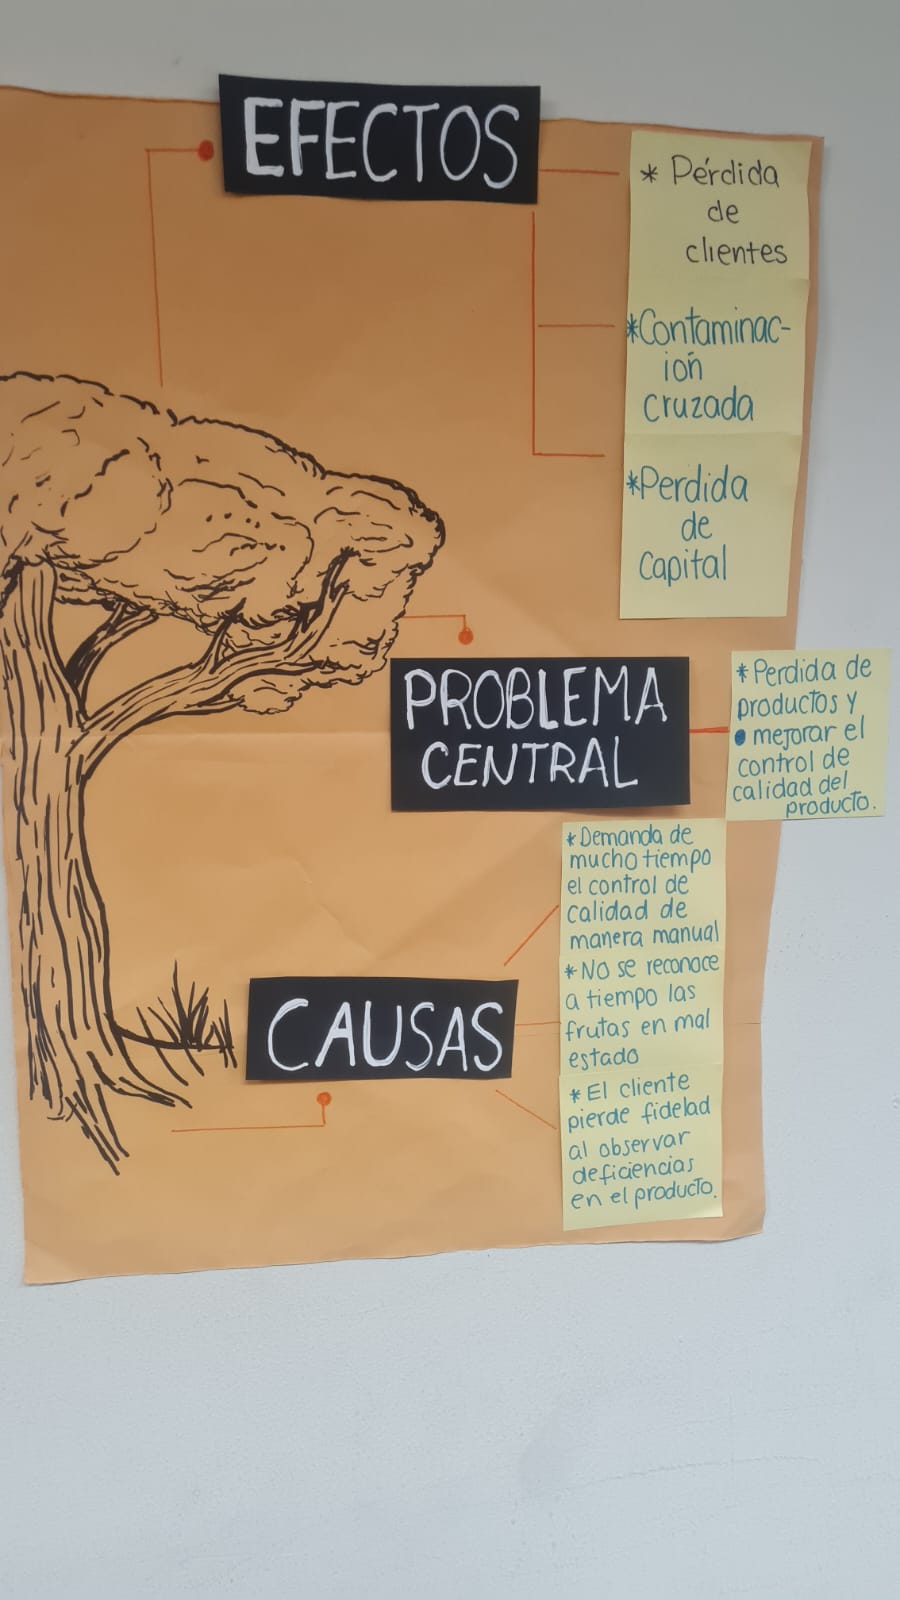 EFECTOS
* Pérdida
de
clientes
*Contaminac-
ión
cruzada
*Perdida
de
capital
PROBLEMA
CENTRAL
* Perdida de
productos y
● mejorar el
control de
calidad del
producto.
CAUSAS
* Demanda de
mucho tiempo
el control de
calidad de
manera manual
* No se reconoce
a tiempo las
frutas en mal
estado
* El cliente
pierde fidelad
al observar
deficiencias
en el producto.